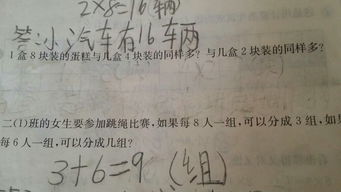 2×8=16辆
答:小汽车有16车辆
1 盒 8 块装的蛋糕与几盒 4 块装的同样多?与几盒 2 块装的同样多?
二(1)班的女生要参加跳绳比赛,如果每 8 人一组,可以分成 3 组,如
每 6 人一组,可以分成几组?
3+6=9(组)